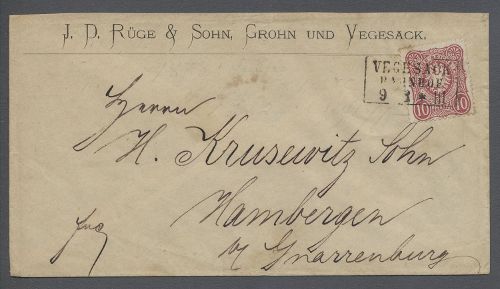 J. D. RÜGE & SOHN, GROHN UND VEGESACK.
VEGESACK
BAHNHOF
9
10 10
Herrn
H. Krusewitz Sohn
Hambergen
by Gnarrenburg